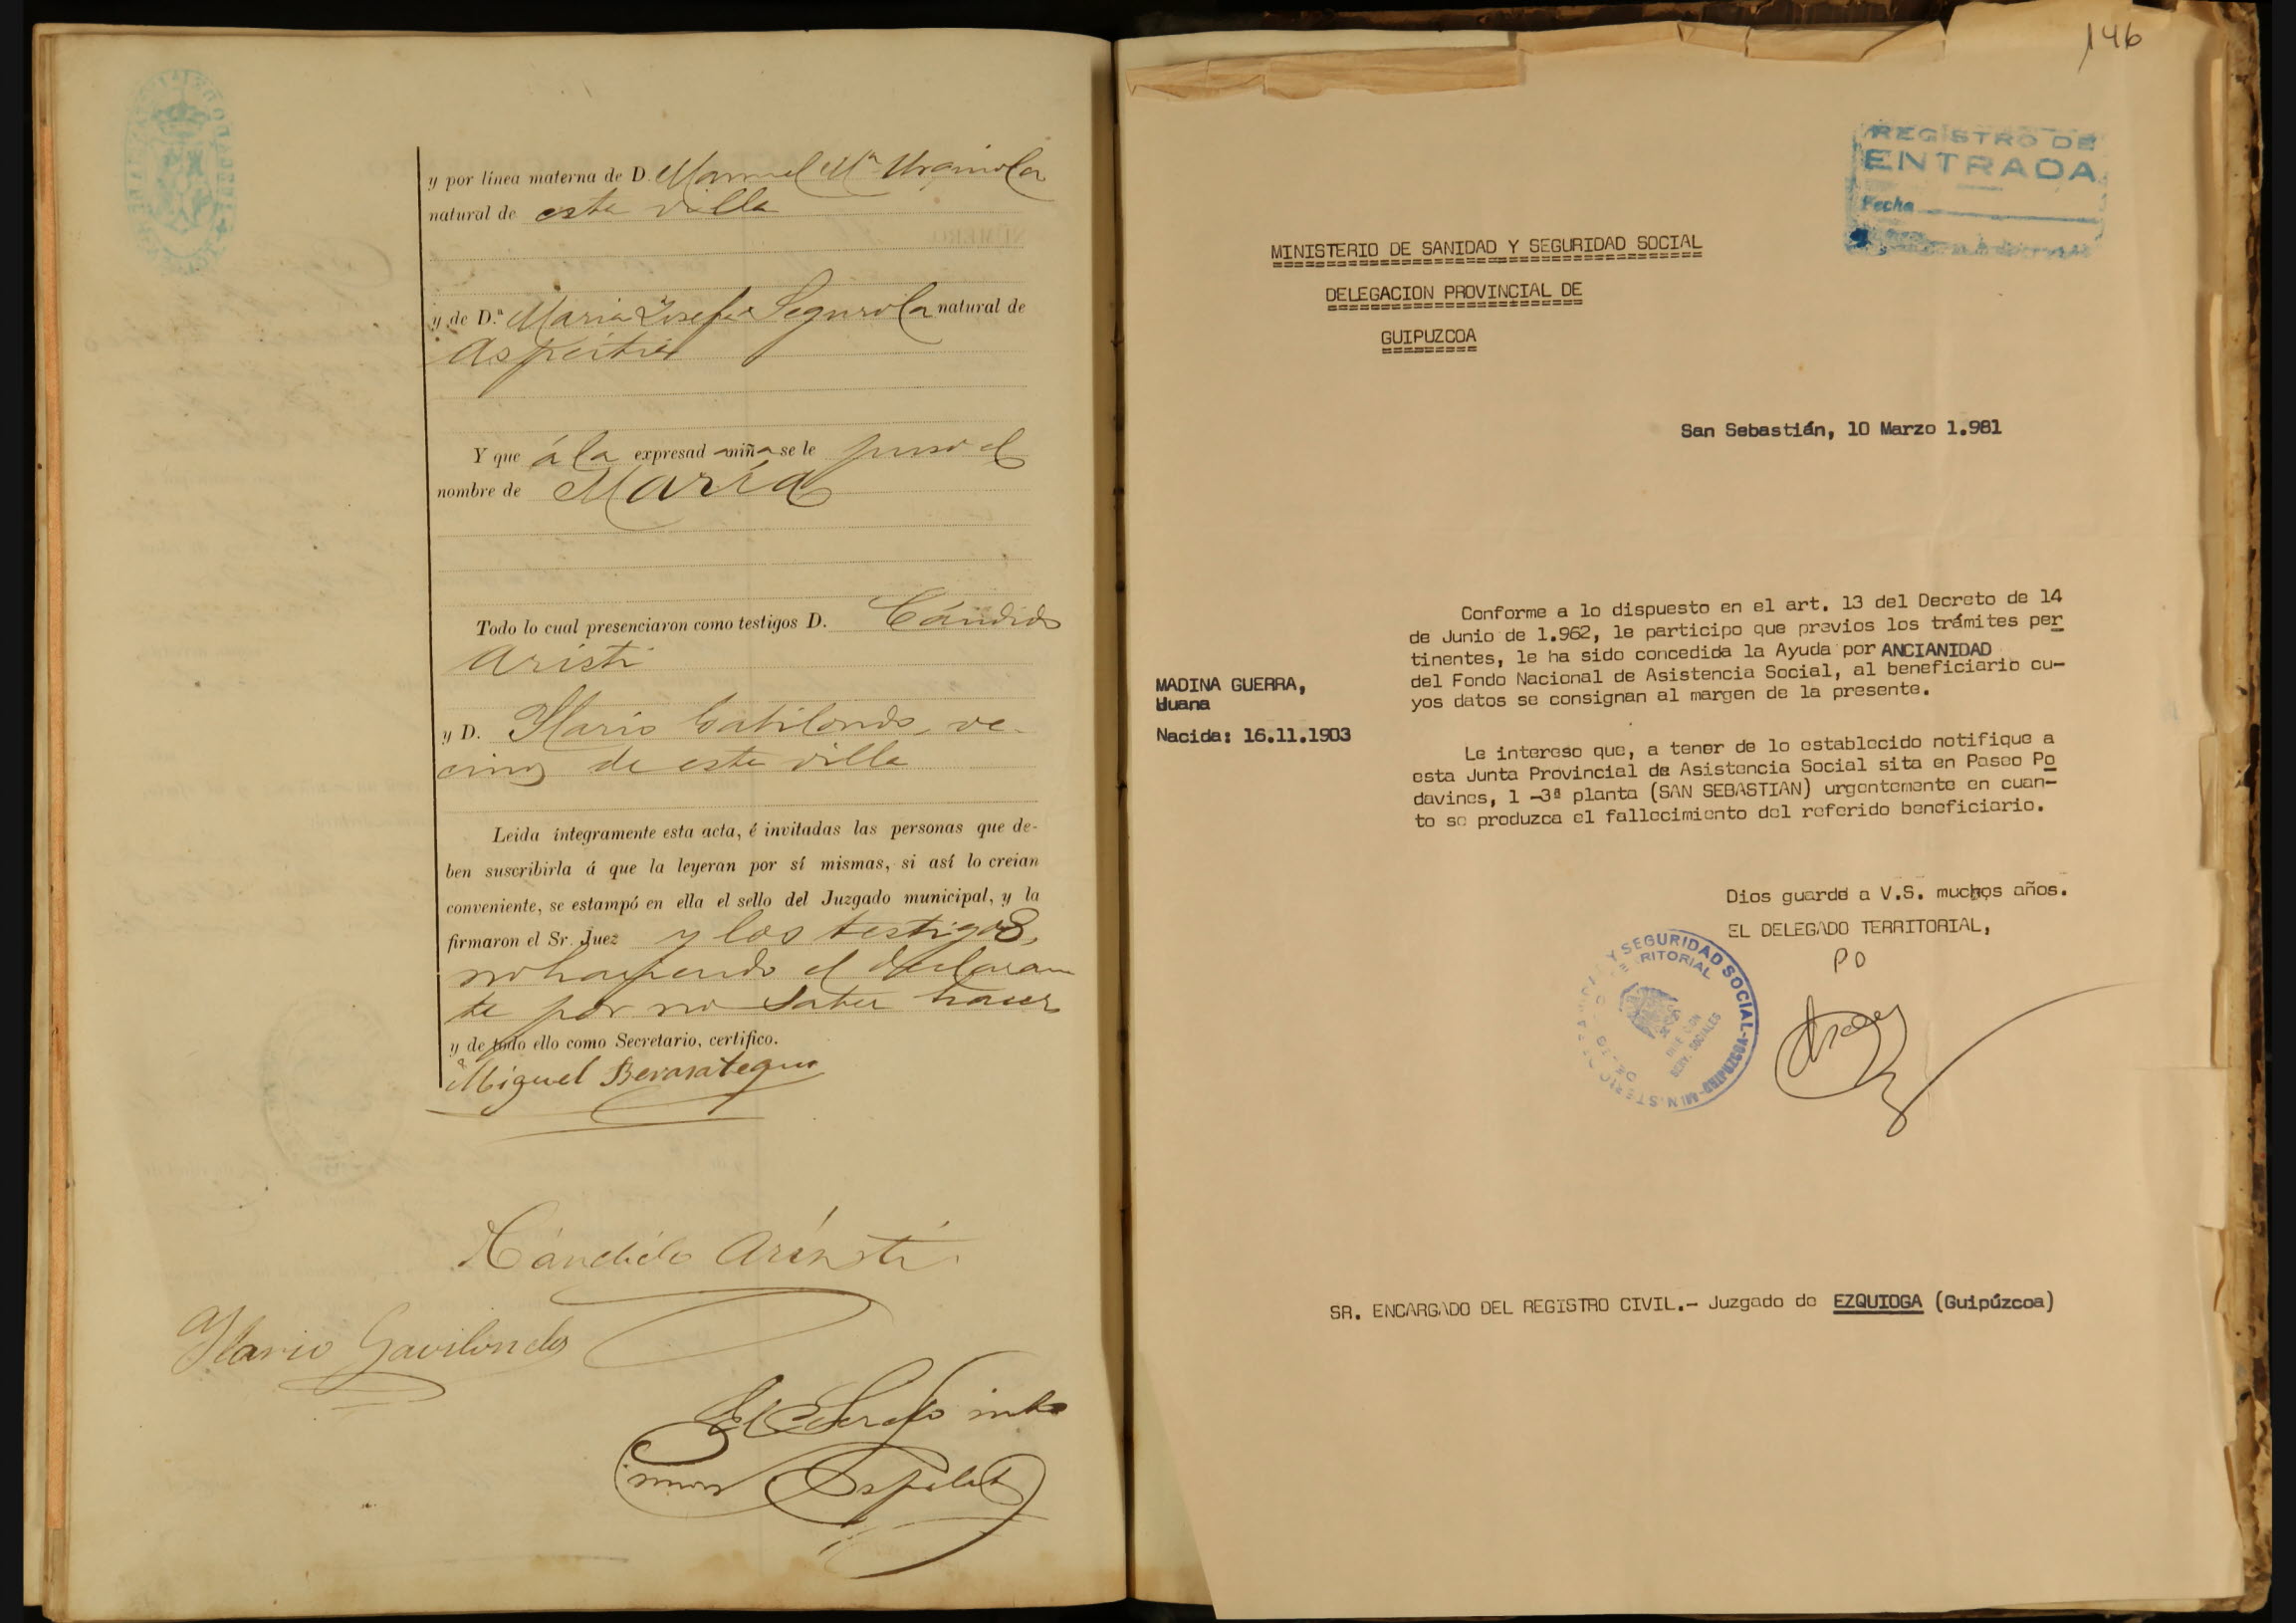 y por línea materna de D. Manuel Mª Urquiola
natural de esta villa
y de D.ª Maria Josefa Segurola natural de
Aspeitia
Y que á la expresad a niña se le puso el
nombre de María
Todo lo cual presenciaron como testigos D. Cándido
Aristi
y D. Ilario Gabilondo, ve-
cinos de esta villa
Leida íntegramente esta acta, é invitadas las personas que de-
ben suscribirla á que la leyeran por sí mismas, si así lo creian
conveniente, se estampó en ella el sello del Juzgado municipal, y la
firmaron el Sr. Juez y los testigos,
no haciendo el declaran
te por no saber hacer
y de todo ello como Secretario, certifico.
Miguel Berasategui
Cándido Aristi
Ilario Gavilondo
El Secreto
146
REGISTRO DE
ENTRADA
Fecha
MINISTERIO DE SANIDAD Y SEGURIDAD SOCIAL
DELEGACION PROVINCIAL DE
GUIPUZCOA
San Sebastián, 10 Marzo 1.981
MADINA GUERRA,
Juana
Nacida: 16.11.1903
Conforme a lo dispuesto en el art. 13 del Decreto de 14
de Junio de 1.962, le participo que previos los trámites per
tinentes, le ha sido concedida la Ayuda por ANCIANIDAD
del Fondo Nacional de Asistencia Social, al beneficiario cu-
yos datos se consignan al margen de la presente.
Le intereso que, a tenor de lo establecido notifique a
esta Junta Provincial de Asistencia Social sita en Paseo Po
davines, 1 -3ª planta (SAN SEBASTIAN) urgentemente en cuan-
to se produzca el fallecimiento del referido beneficiario.
Dios guarde a V.S. muchos años.
EL DELEGADO TERRITORIAL,
PO
Y SEGURIDAD SOCIAL-GUIPUZCOA-MINISTERIO
SERV. SOCIALES
SR. ENCARGADO DEL REGISTRO CIVIL.- Juzgado de EZQUIOGA (Guipúzcoa)